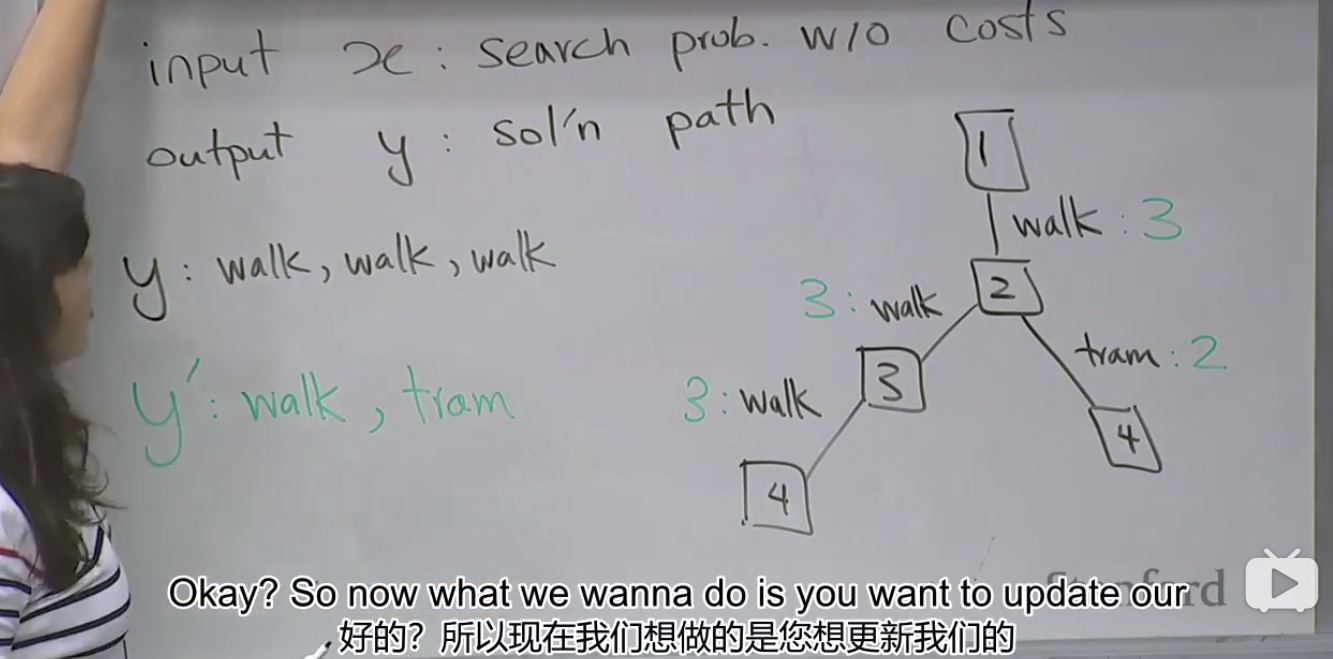 input x : search prob. w/o costs
output y : sol'n path
1
walk : 3
y : walk, walk, walk
2
3 : walk
tram : 2
3
y' : walk, tram
3 : walk
4
4
Stanford
Okay? So now what we wanna do is you want to update our
好的？所以现在我们想做的是您想更新我们的